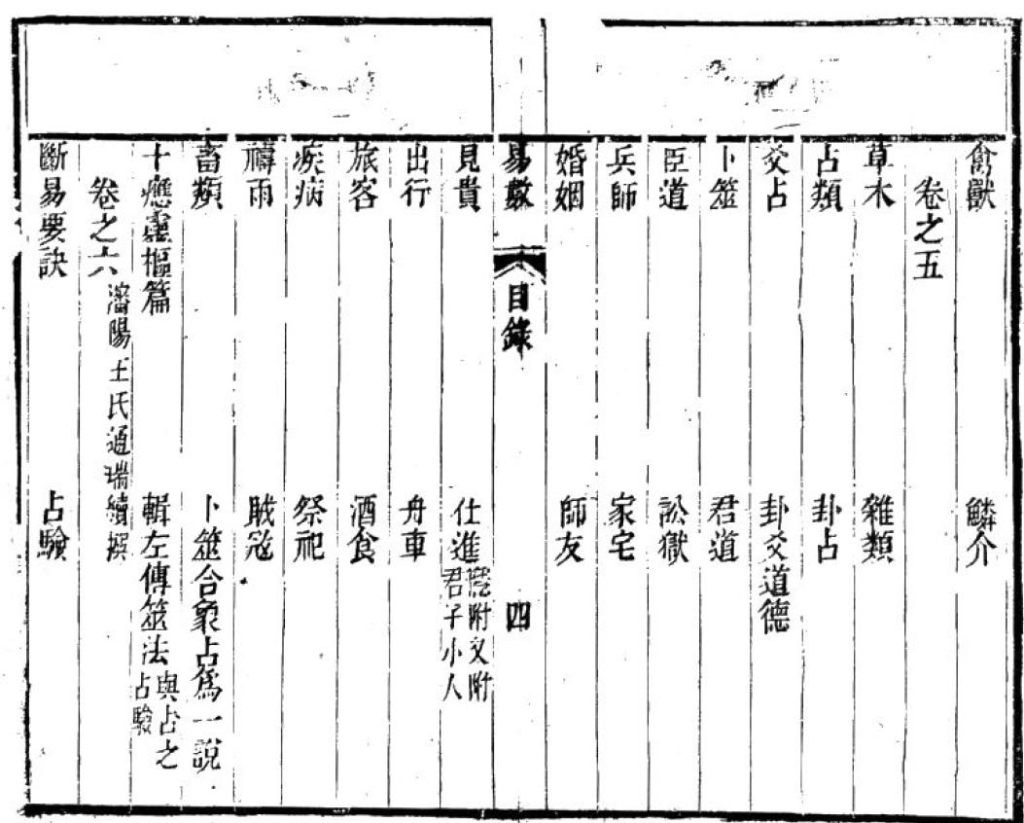 禽獸 鱗介
卷之五
草木 雜類
占類 卦占
爻占 卦爻道德
卜筮 君道
臣道 訟獄
兵師 家宅
婚姻 師友
易數 目錄 四
見貴 仕進 附文附君子小人
出行 舟車
旅客 酒食
疾病 祭祀
禱雨 賊寇
畜類 卜筮合象占為一說
十應靈樞篇 輯左傳筮法 與占之占驗
卷之六 瀋陽王氏通瑞續撰
斷易要訣 占驗